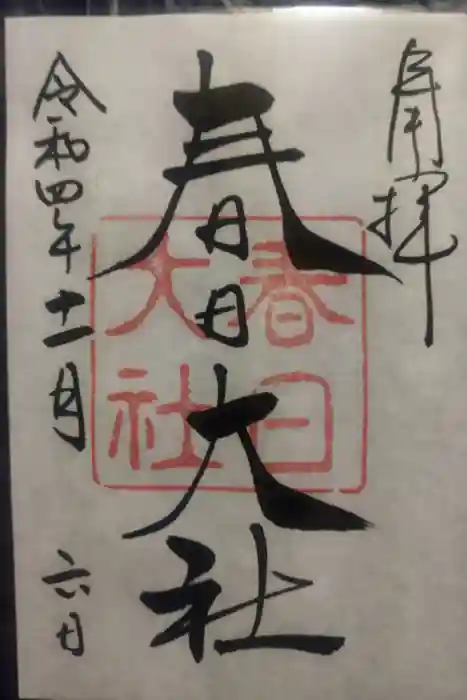 奉拝
春日大社
春日
大社
令和四年十一月六日